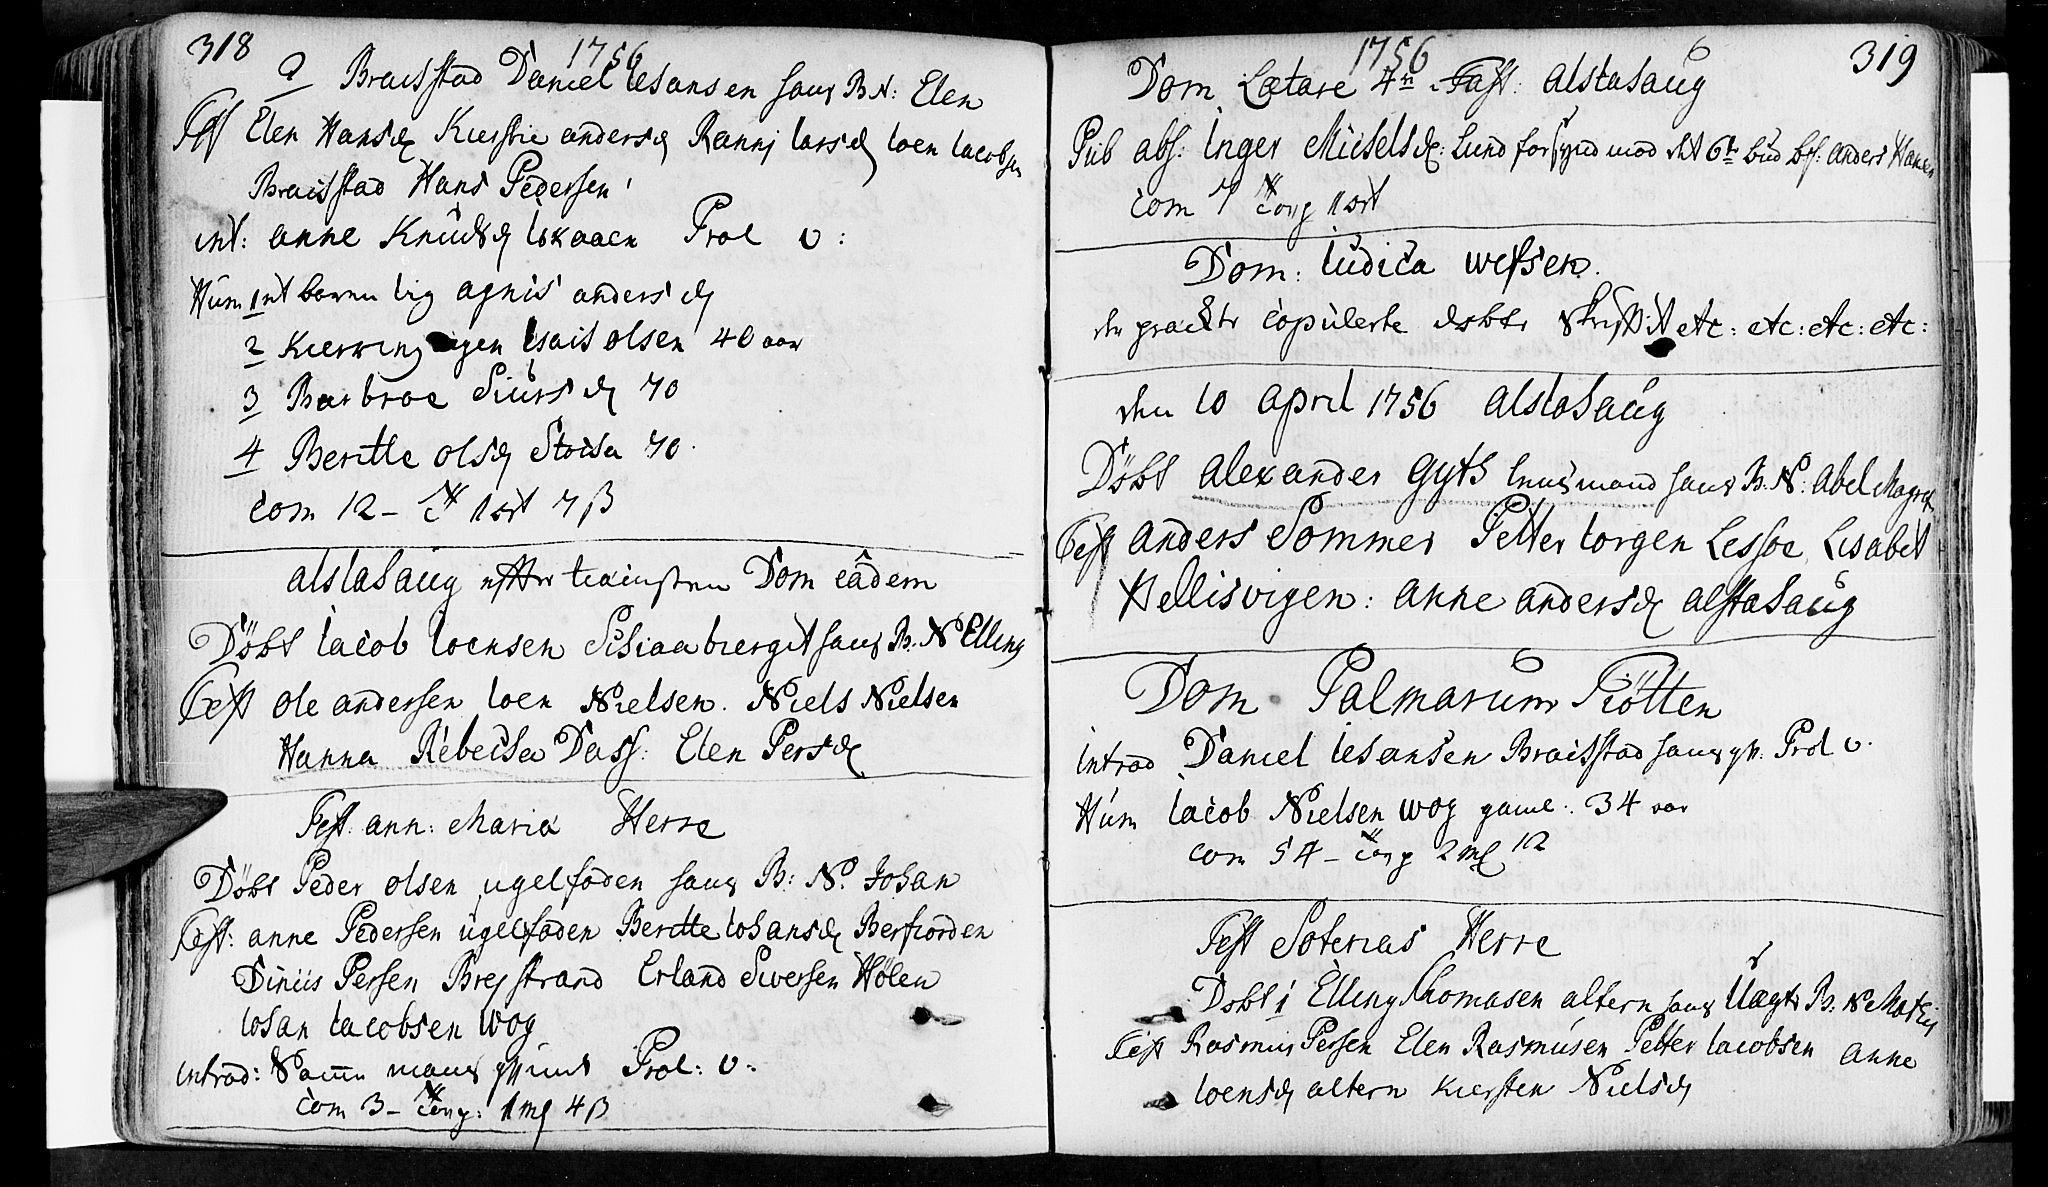 318
1756
2 Braisstad Daniel Iesansen hans B N: Elen
Test Elen Hansd Kierstie andersd Ranni larsd Ioen Iacobsen
Braisstad Hans Pedersen
int: anne Knudsd Prol v:
Hum 1 et barne lig agnis andersd
2 olsen 40 aar
3 Barbroe Siursd 70
4 Beritte olsd 70
Com 12 - 1 ort 7 β
alstahaug efter Dom eâdem
Döbt Iacob Ioensen hans B. N Elling
Test ole andersen Ioen Nielsen. Niels Nielsen
Hanna Rebecka Dass: Elen Persd
Fest: ann: Maria Herre
Döbt Peder olsen ugelfoden hans B: N. Johan
Test: anne Pedersen ugelfoden Beritte Iohansd Berfiorden
Dinius Persen Breystrand Erland Siversen Hölen
Iohan Iacobsen Wog
introd: Prol: v:
Com 3 - 1 m 4 β
1756
319
Dom Lætare 4 Fast: alstahaug
Pub abs: Inger Michelsd: Lund for synd mod det 6te bud bes: anders Hansen
Com 7 1 ort
Dom: Iudica Wefsen.
copulerte döbte etc: etc: etc: etc:
den 10 april 1756 alstahaug
Döbt alexander gyts huusmand hans B: N: abel Magret
Test anders Sommer Petter Iorgen Lessoe Lisabet
Hellisvigen: anne andersd alstahaug
Dom Palmarum Tiötten
Introd Daniel Iesansen Braisstad hans Prol v.
Hum Iacob Nielsen Wog gaml. 34 aar
Com 54 - 2 m 12
Fest Soterias Herre
Döbt 1 Elling Thomasen altern hans B: N
Test Rasmus Persen Elen Rasmusen Petter Iacobsen anne
Ioensd altern Kiersten Nielsd